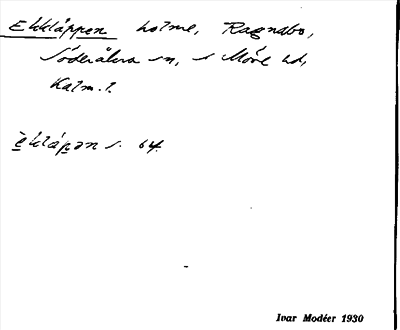 Ekkläppen holme, Ragnabo,
Söderåkra sn, s Möre hd,
Kalm. l.
ĕkläpən s. 64.
Ivar Modéer 1930